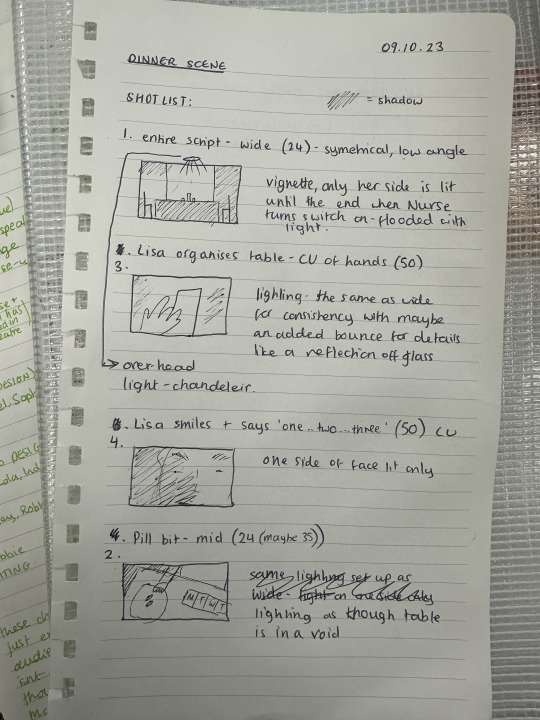 09.10.23
DINNER SCENE
SHOTLIST:
= shadow
1. entire script - wide (24) - symetrical, low angle
vignette, only her side is lit
until the end when Nurse
turns switch on - flooded with
light.
Lisa organises table - CU of hands (50)
3.
lighting - the same as wide
for consistency with maybe
an added bounce for details
like a reflection off glass
over head
light - chandeleir.
Lisa smiles + says 'one.. two... three' (50) CU
4.
one side of face lit only
4. Pill bit - mid (24 (maybe 35))
2.
M T W T
same lighting set up as
wide - light on one side only
lighting as though table
is in a void